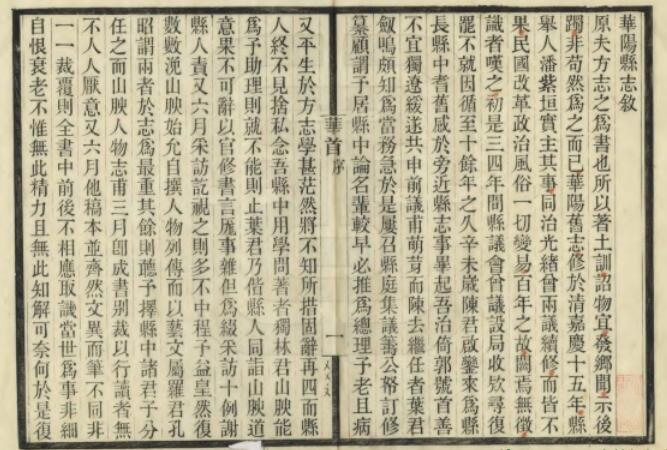 華陽縣志敘
原夫方志之爲書也所以著土訓詔物宜發鄉聞示後
躅非苟然爲之而已華陽舊志修於清嘉慶十五年縣
舉人潘紫垣實主其事同治光緒曾兩議續修而皆不
果民國改革政治風俗一切變易百年之故闕焉無徵
識者嘆之初是三四年間縣議會曾議設局收攷尋復
罷不就因循至十餘年之久辛未歲陳君啟鑾來爲縣
長縣中耆舊感於旁近縣志事畢起吾治倚郭號首善
不宜獨遼緩遂共申前議甫萌芽而陳去繼任者葉君
劔鳴頗知爲當務急於是屢召縣庭集議籌公帑訂修
纂顧謂予居縣中論名輩較早必推爲總理予老且病
華首 序
一
又平生於方志學甚茫然將不知所措固辭再四而縣
人終不見捨私念吾縣中用學問著者獨林君山腴能
爲予助理則就不能則止葉君乃偕縣人同詣山腴道
意果不可辭以官修書言厖事雜但爲綴采訪十例謝
縣人責又六月采訪訖視之則多不中程予益皇然復
數數浼山腴始允自撰人物列傳而以藝文屬羅君孔
昭謂兩者於志爲最重其餘則聽予擇縣中諸君子分
任之而山腴人物志甫三月卽成書別裁以行讀者無
不人人厭意又六月他稿本並齊然文異而筆不同非
一一裁覆則全書中前後不相應取譏當世爲事非細
自恨衰老不惟無此精力且無此知解可奈何於是復